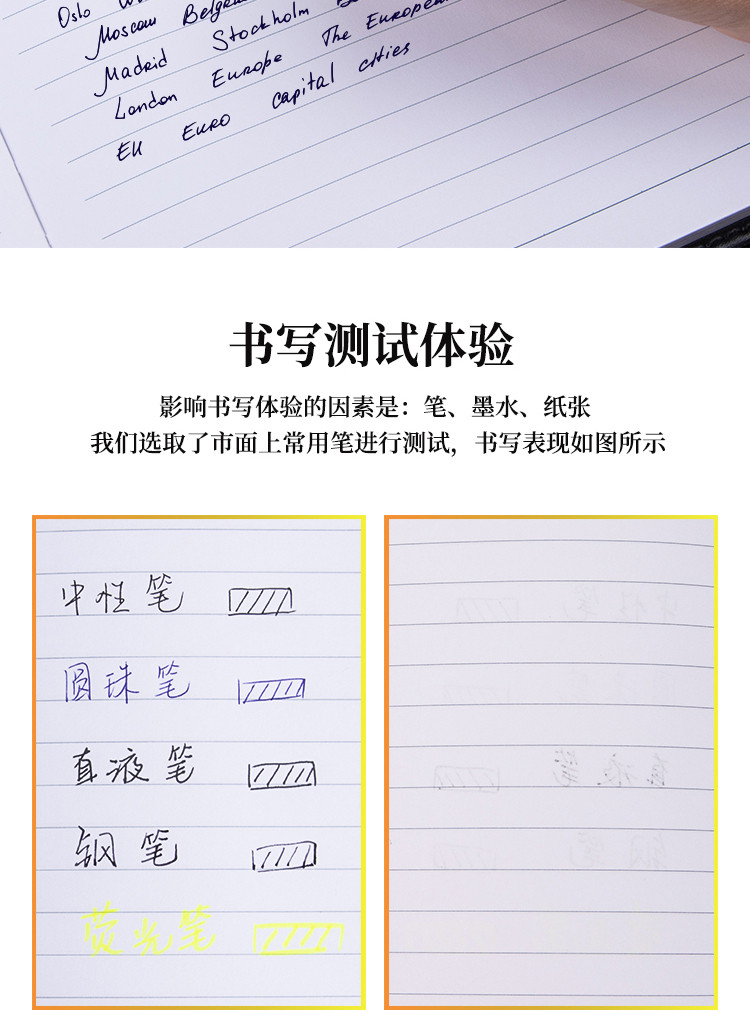 Oslo
Moscow
Madrid Stockholm
London Europe The European
EU EURO capital cities
书写测试体验
影响书写体验的因素是：笔、墨水、纸张
我们选取了市面上常用笔进行测试，书写表现如图所示
中性笔
圆珠笔
直液笔
钢笔
荧光笔